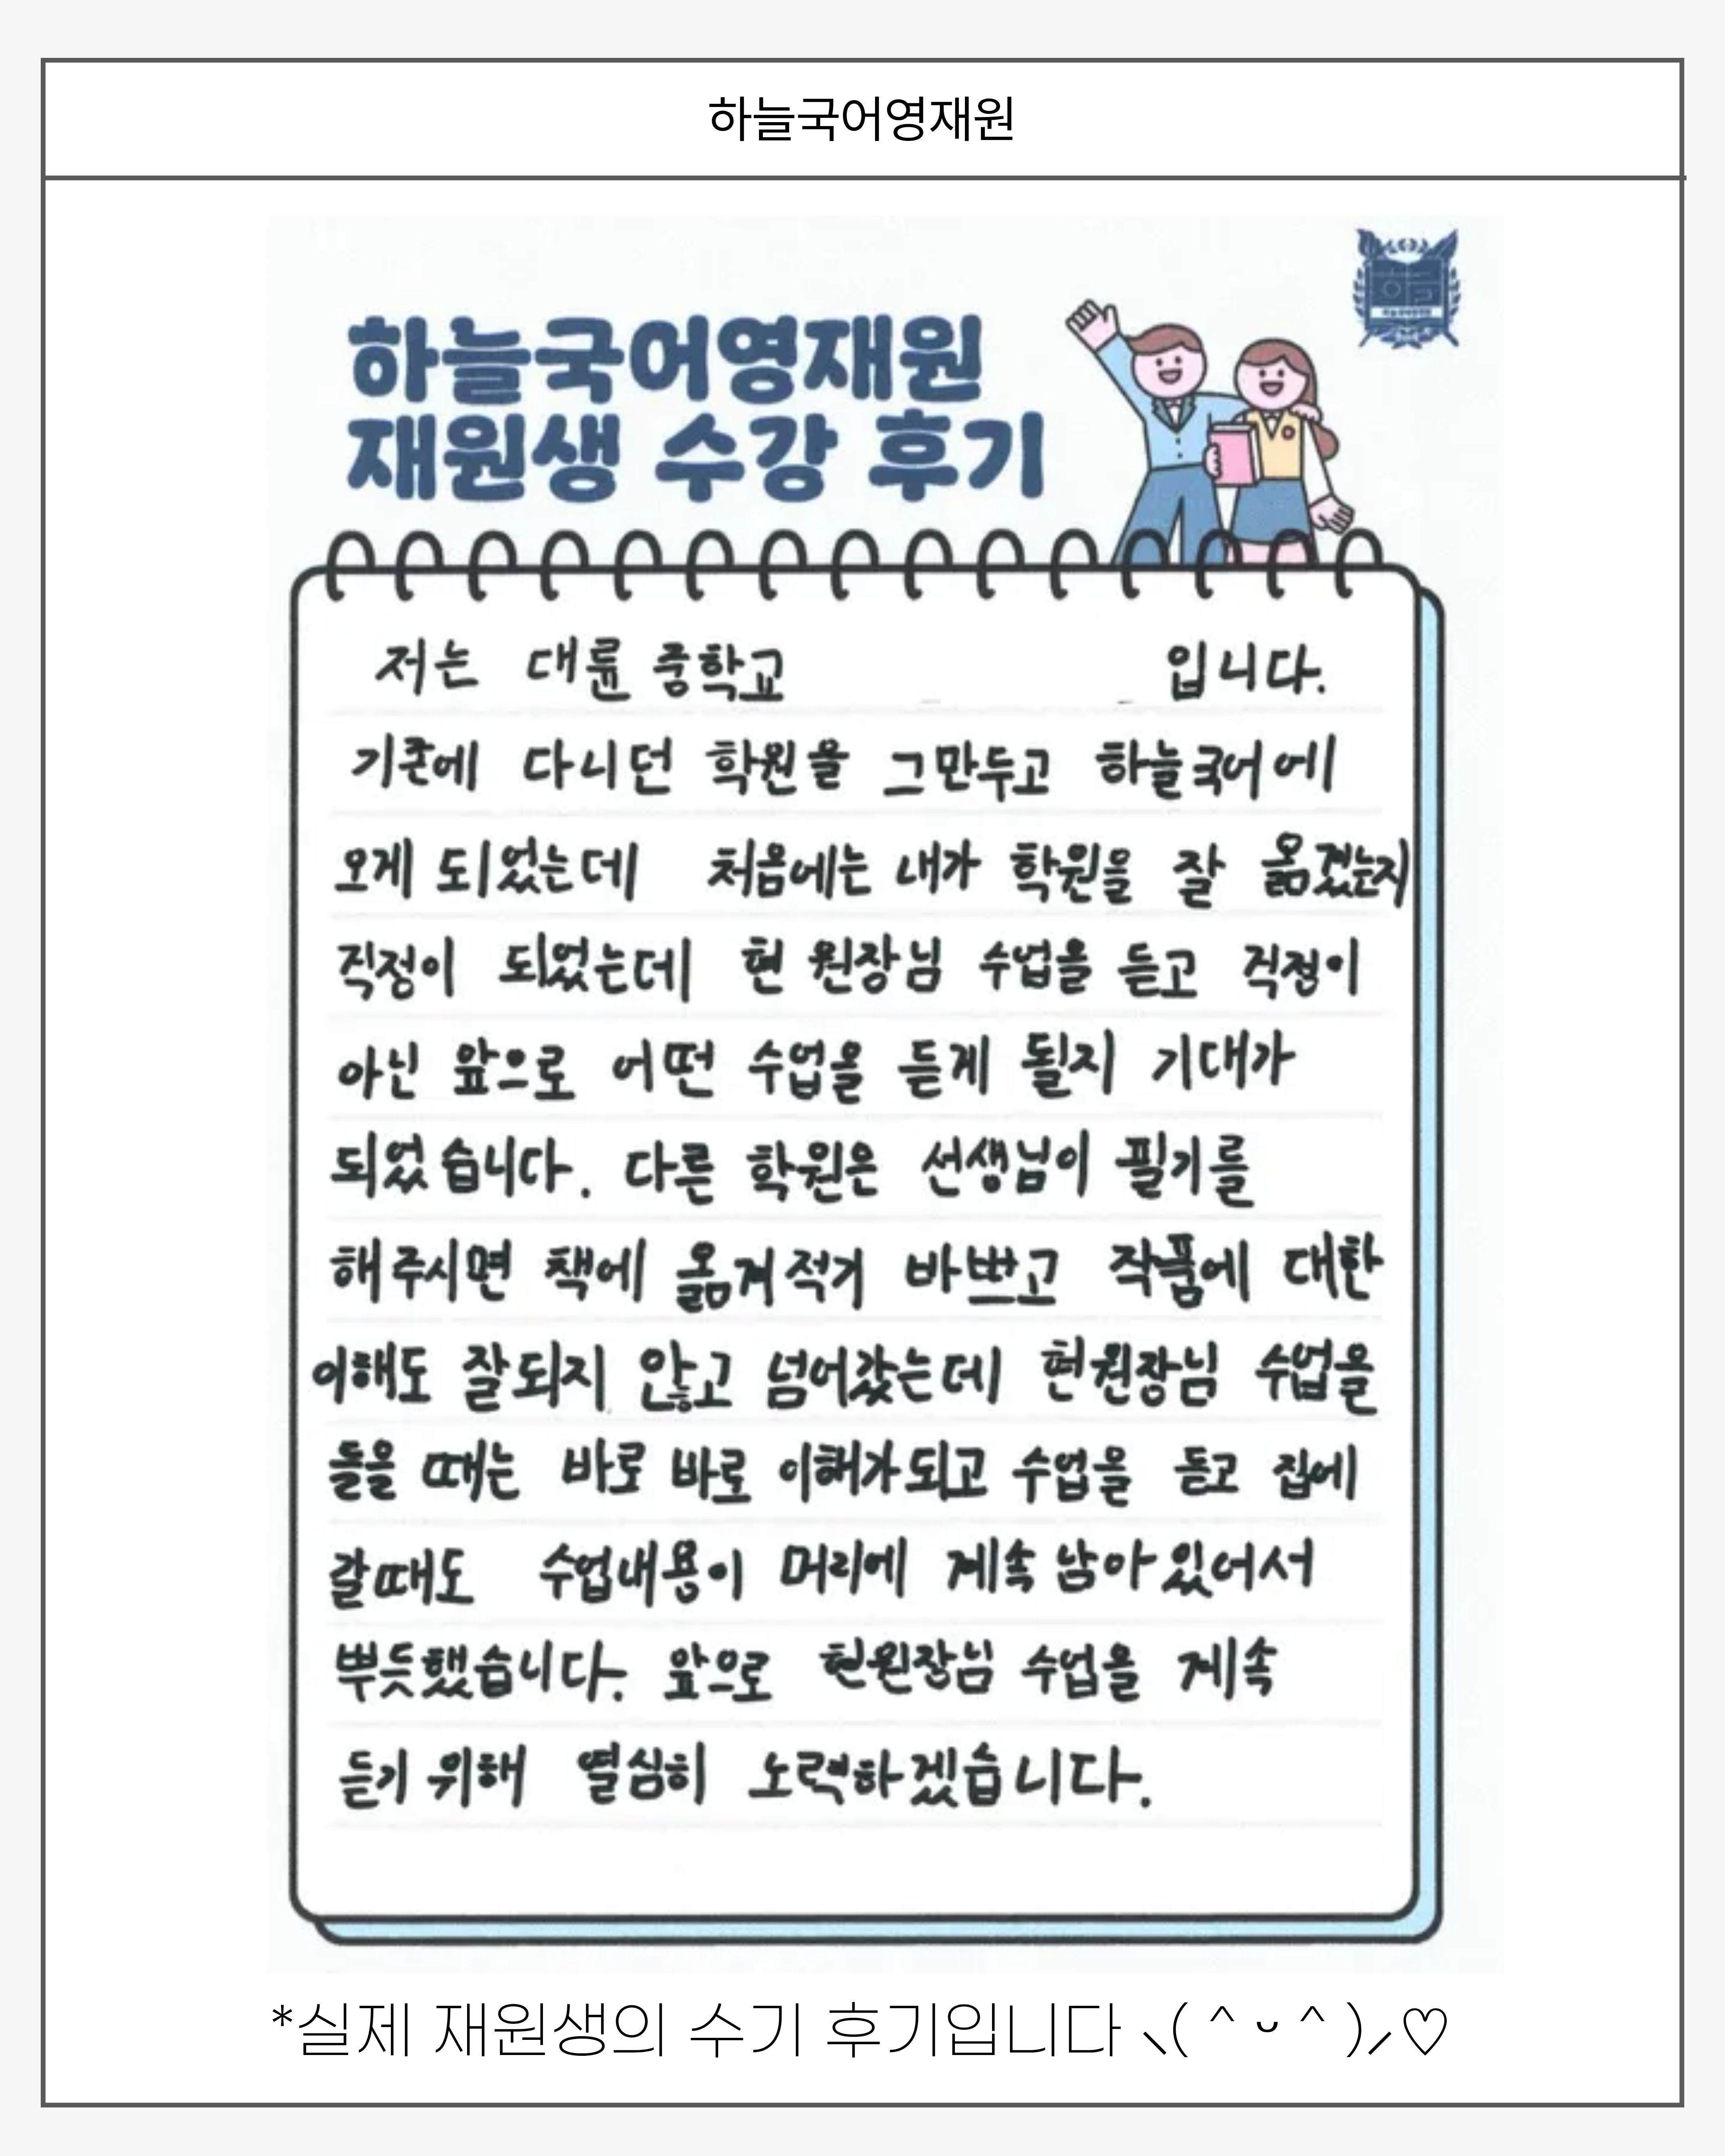 하늘국어영재원
하늘국어영재원
재원생 수강 후기
저는 대륜중학교 입니다.
기존에 다니던 학원을 그만두고 하늘국어에
오게 되었는데 처음에는 내가 학원을 잘 옮겼는지
걱정이 되었는데 현 원장님 수업을 듣고 걱정이
아닌 앞으로 어떤 수업을 듣게 될지 기대가
되었습니다. 다른 학원은 선생님이 필기를
해주시면 책에 옮겨적기 바쁘고 작품에 대한
이해도 잘되지 않고 넘어갔는데 현원장님 수업을
들을 때는 바로 바로 이해가되고 수업을 듣고 집에
갈때도 수업내용이 머리에 계속 남아있어서
뿌듯했습니다. 앞으로 현원장님 수업을 계속
듣기 위해 열심히 노력하겠습니다.
*실제 재원생의 수기 후기입니다 ⸜( ˆ ᴗ ˆ )⸝♡